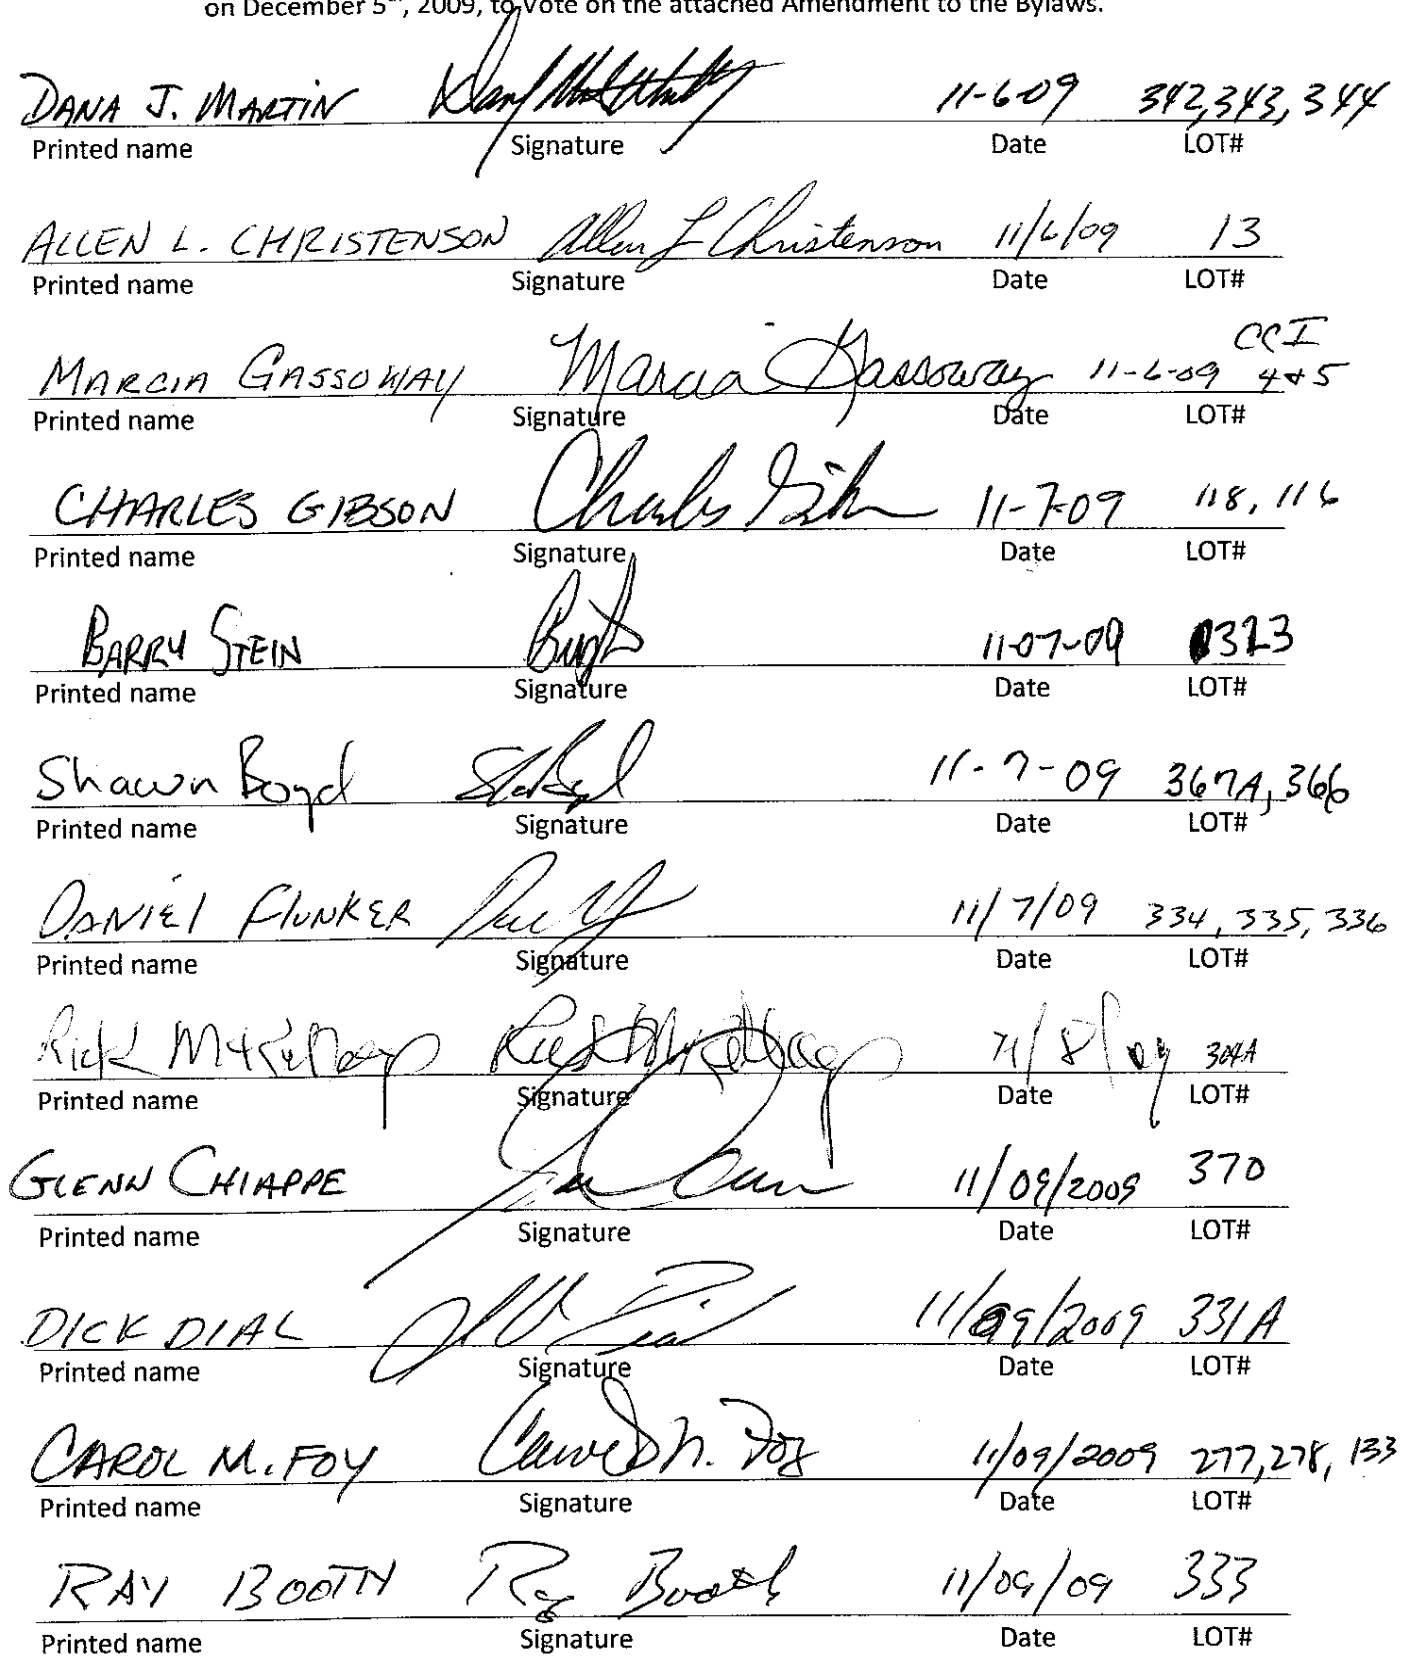 on December 5th, 2009, to vote on the attached Amendment to the Bylaws.
DANA J. MARTIN 11-6-09 342,343,344
Printed name Signature Date LOT#
ALLEN L. CHRISTENSON Allen L Christenson 11/6/09 13
Printed name Signature Date LOT#
CCI
MARCIA GASSOWAY Marcia Gassoway 11-6-09 4&5
Printed name Signature Date LOT#
CHARLES GIBSON Charles Gibson 11-7-09 118, 116
Printed name Signature Date LOT#
BARRY STEIN 11-07-09 323
Printed name Signature Date LOT#
Shawn Boyd 11-7-09 367A, 366
Printed name Signature Date LOT#
DANIEL FLUNKER 11/7/09 334, 335, 336
Printed name Signature Date LOT#
Rick 11/8/09 304A
Printed name Signature Date LOT#
GLENN CHIAPPE 11/09/2009 370
Printed name Signature Date LOT#
DICK DIAL 11/09/2009 331A
Printed name Signature Date LOT#
CAROL M. FOY Carol M. Foy 11/09/2009 277,278, 133
Printed name Signature Date LOT#
RAY BOOTH Ray Booth 11/09/09 333
Printed name Signature Date LOT#